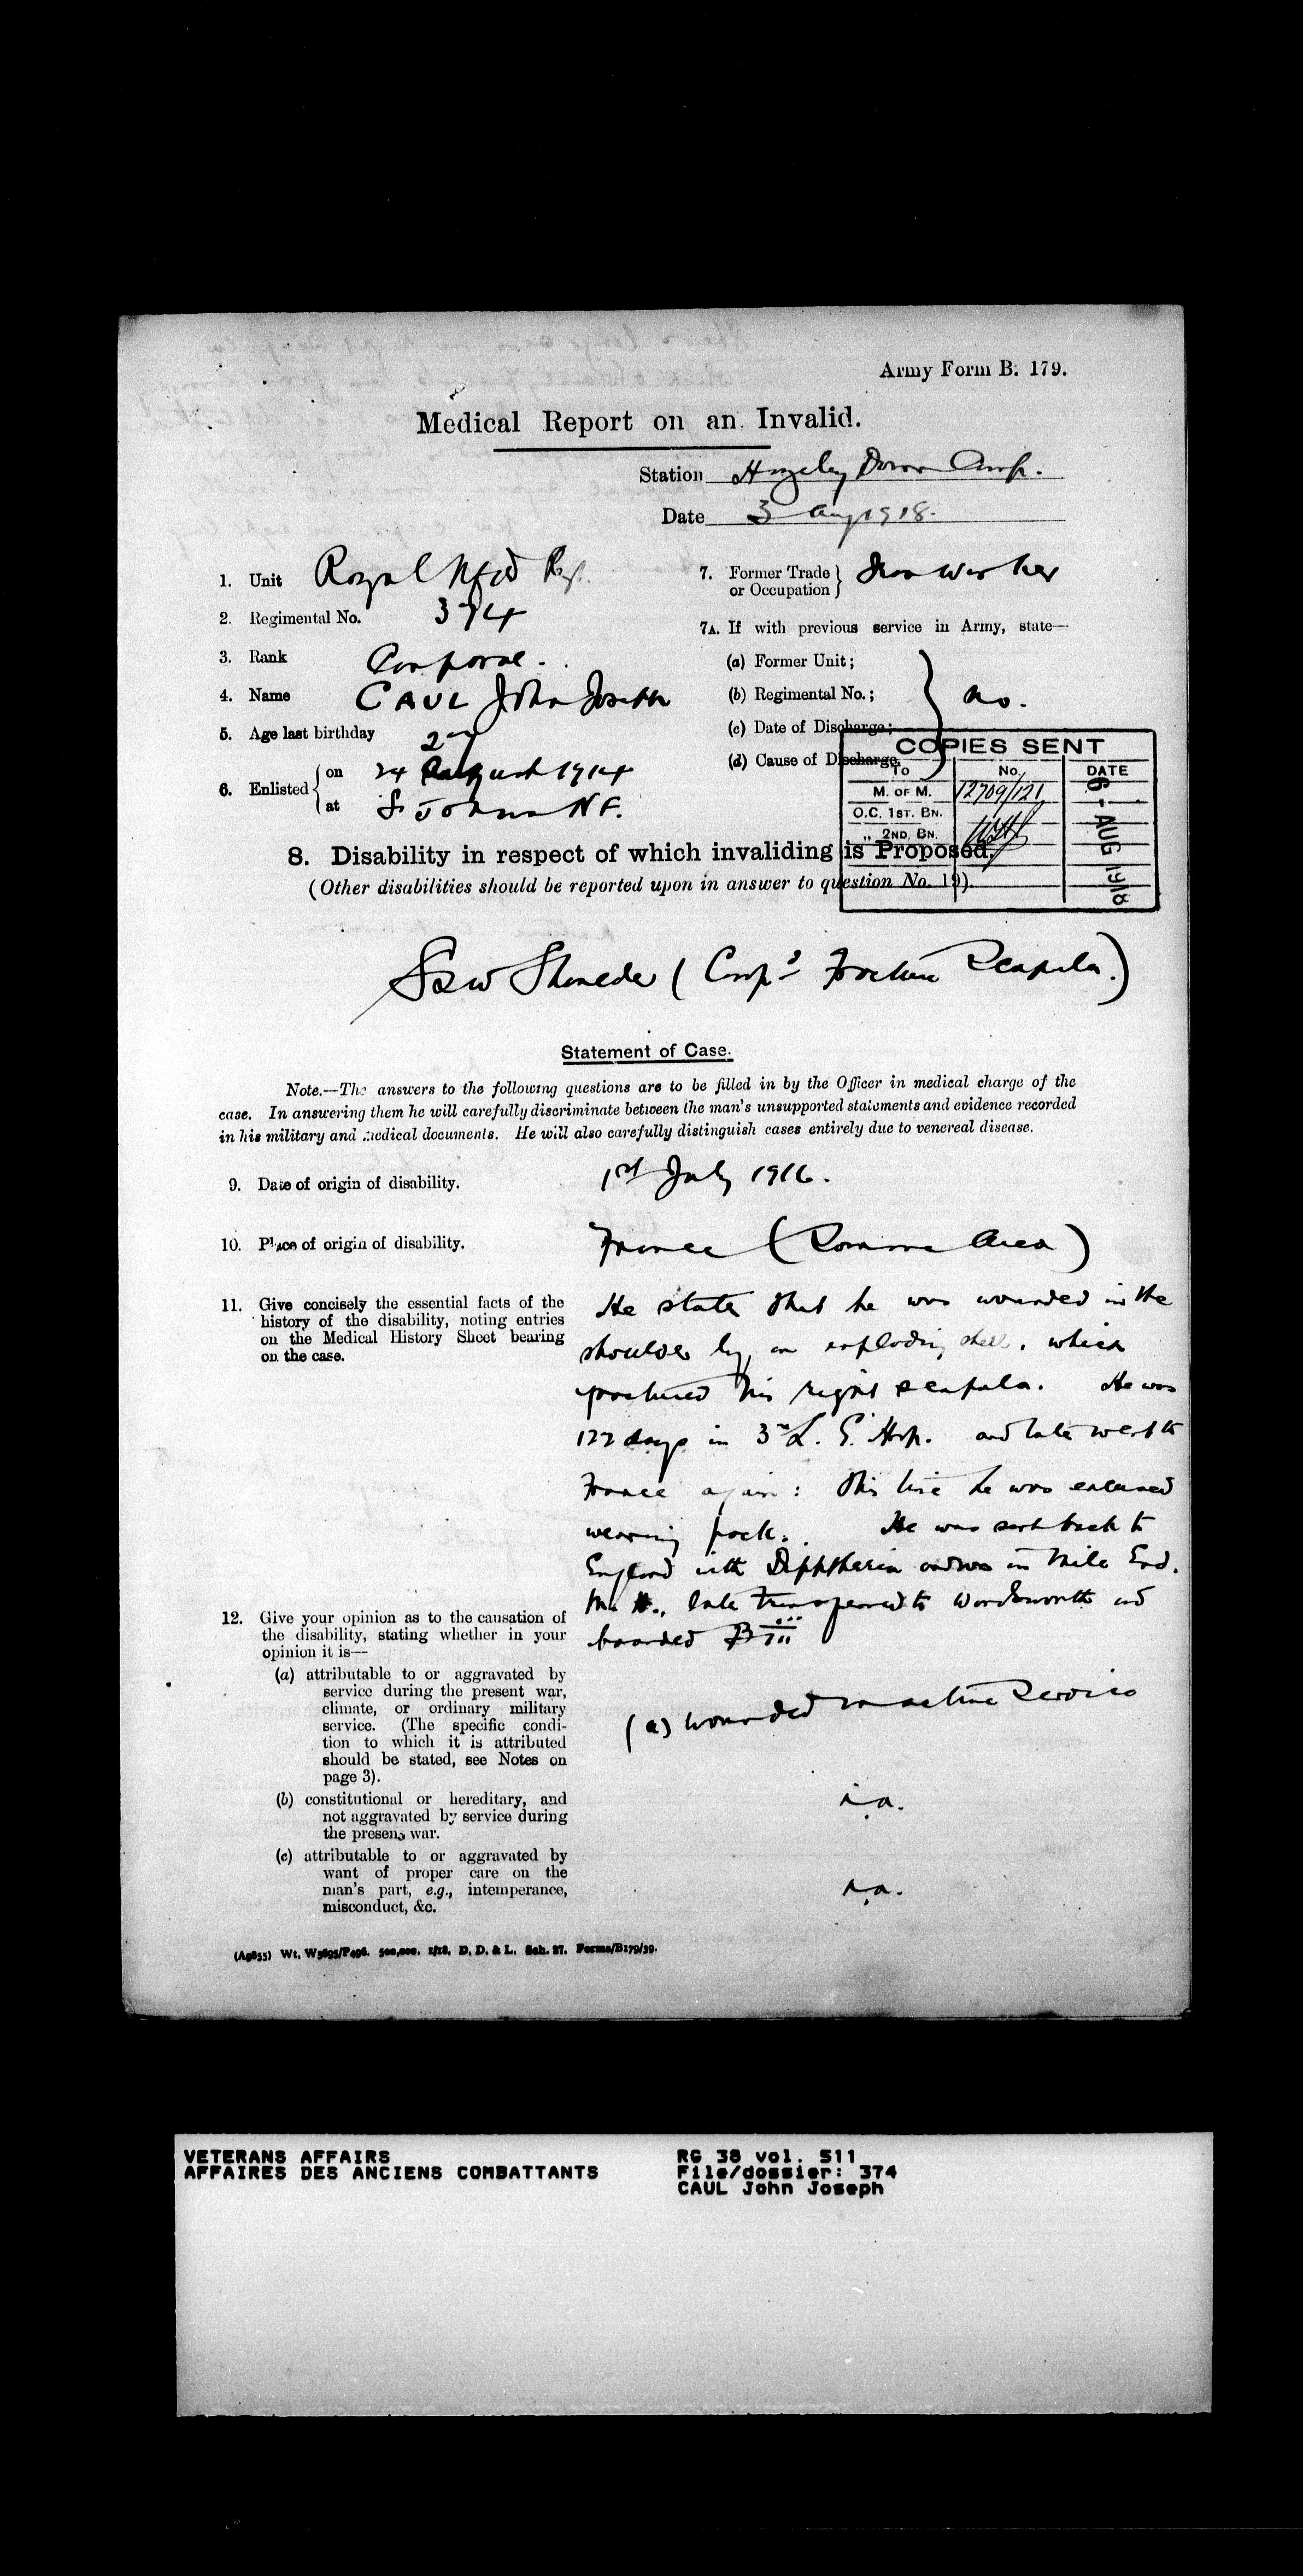 Army Form B. 179.
Medical Report on an Invalid.
Station Hazeley Down Camp.
Date 3 Aug 1918.
1. Unit Royal Nfld Regt.
2. Regimental No. 374
3. Rank Corporal.
4. Name CAUL John Joseph
5. Age last birthday
6. Enlisted { on 24 August 1914
at St Johns NF.
7. Former Trade or Occupation } Iron worker
7A. If with previous service in Army, state—
(a) Former Unit;
(b) Regimental No.;
(c) Date of Discharge;
(d) Cause of Discharge.
} no.
COPIES SENT
To No. DATE
M. OF M. 12709/121
O.C. 1ST. BN.
„ 2ND. BN.
6 - AUG 1918
8. Disability in respect of which invaliding is Proposed.
(Other disabilities should be reported upon in answer to question No. 19).
GSW Shoulder (Compd Fracture Scapula.)
Statement of Case.
Note.—The answers to the following questions are to be filled in by the Officer in medical charge of the
case. In answering them he will carefully discriminate between the man's unsupported statements and evidence recorded
in his military and medical documents. He will also carefully distinguish cases entirely due to venereal disease.
9. Date of origin of disability. 1st July 1916.
10. Place of origin of disability. France (Somme Area)
11. Give concisely the essential facts of the
history of the disability, noting entries
on the Medical History Sheet bearing
on the case.
He states that he was wounded in the
shoulder by an exploding shell, which
fractured his right scapula. He was
122 days in 3rd L. G. Hosp. and later went to
France again: this time he was excused
wearing pack. He was sent back to
England with Diphtheria and was in Mile End.
later transferred to Wandsworth and
boarded Biii
12. Give your opinion as to the causation of
the disability, stating whether in your
opinion it is—
(a) attributable to or aggravated by
service during the present war,
climate, or ordinary military
service. (The specific condi-
tion to which it is attributed
should be stated, see Notes on
page 3).
(a) wounded on active Service
(b) constitutional or hereditary, and
not aggravated by service during
the present war.
n.a.
(c) attributable to or aggravated by
want of proper care on the
man's part, e.g., intemperance,
misconduct, &c.
n.a.
(A9855) Wt. W5695/P496. 500,000. 1/18. D. D. & L. Sch. 27. Forms/B179/39.
VETERANS AFFAIRS
AFFAIRES DES ANCIENS COMBATTANTS
RG 38 vol. 511
File/dossier: 374
CAUL John Joseph